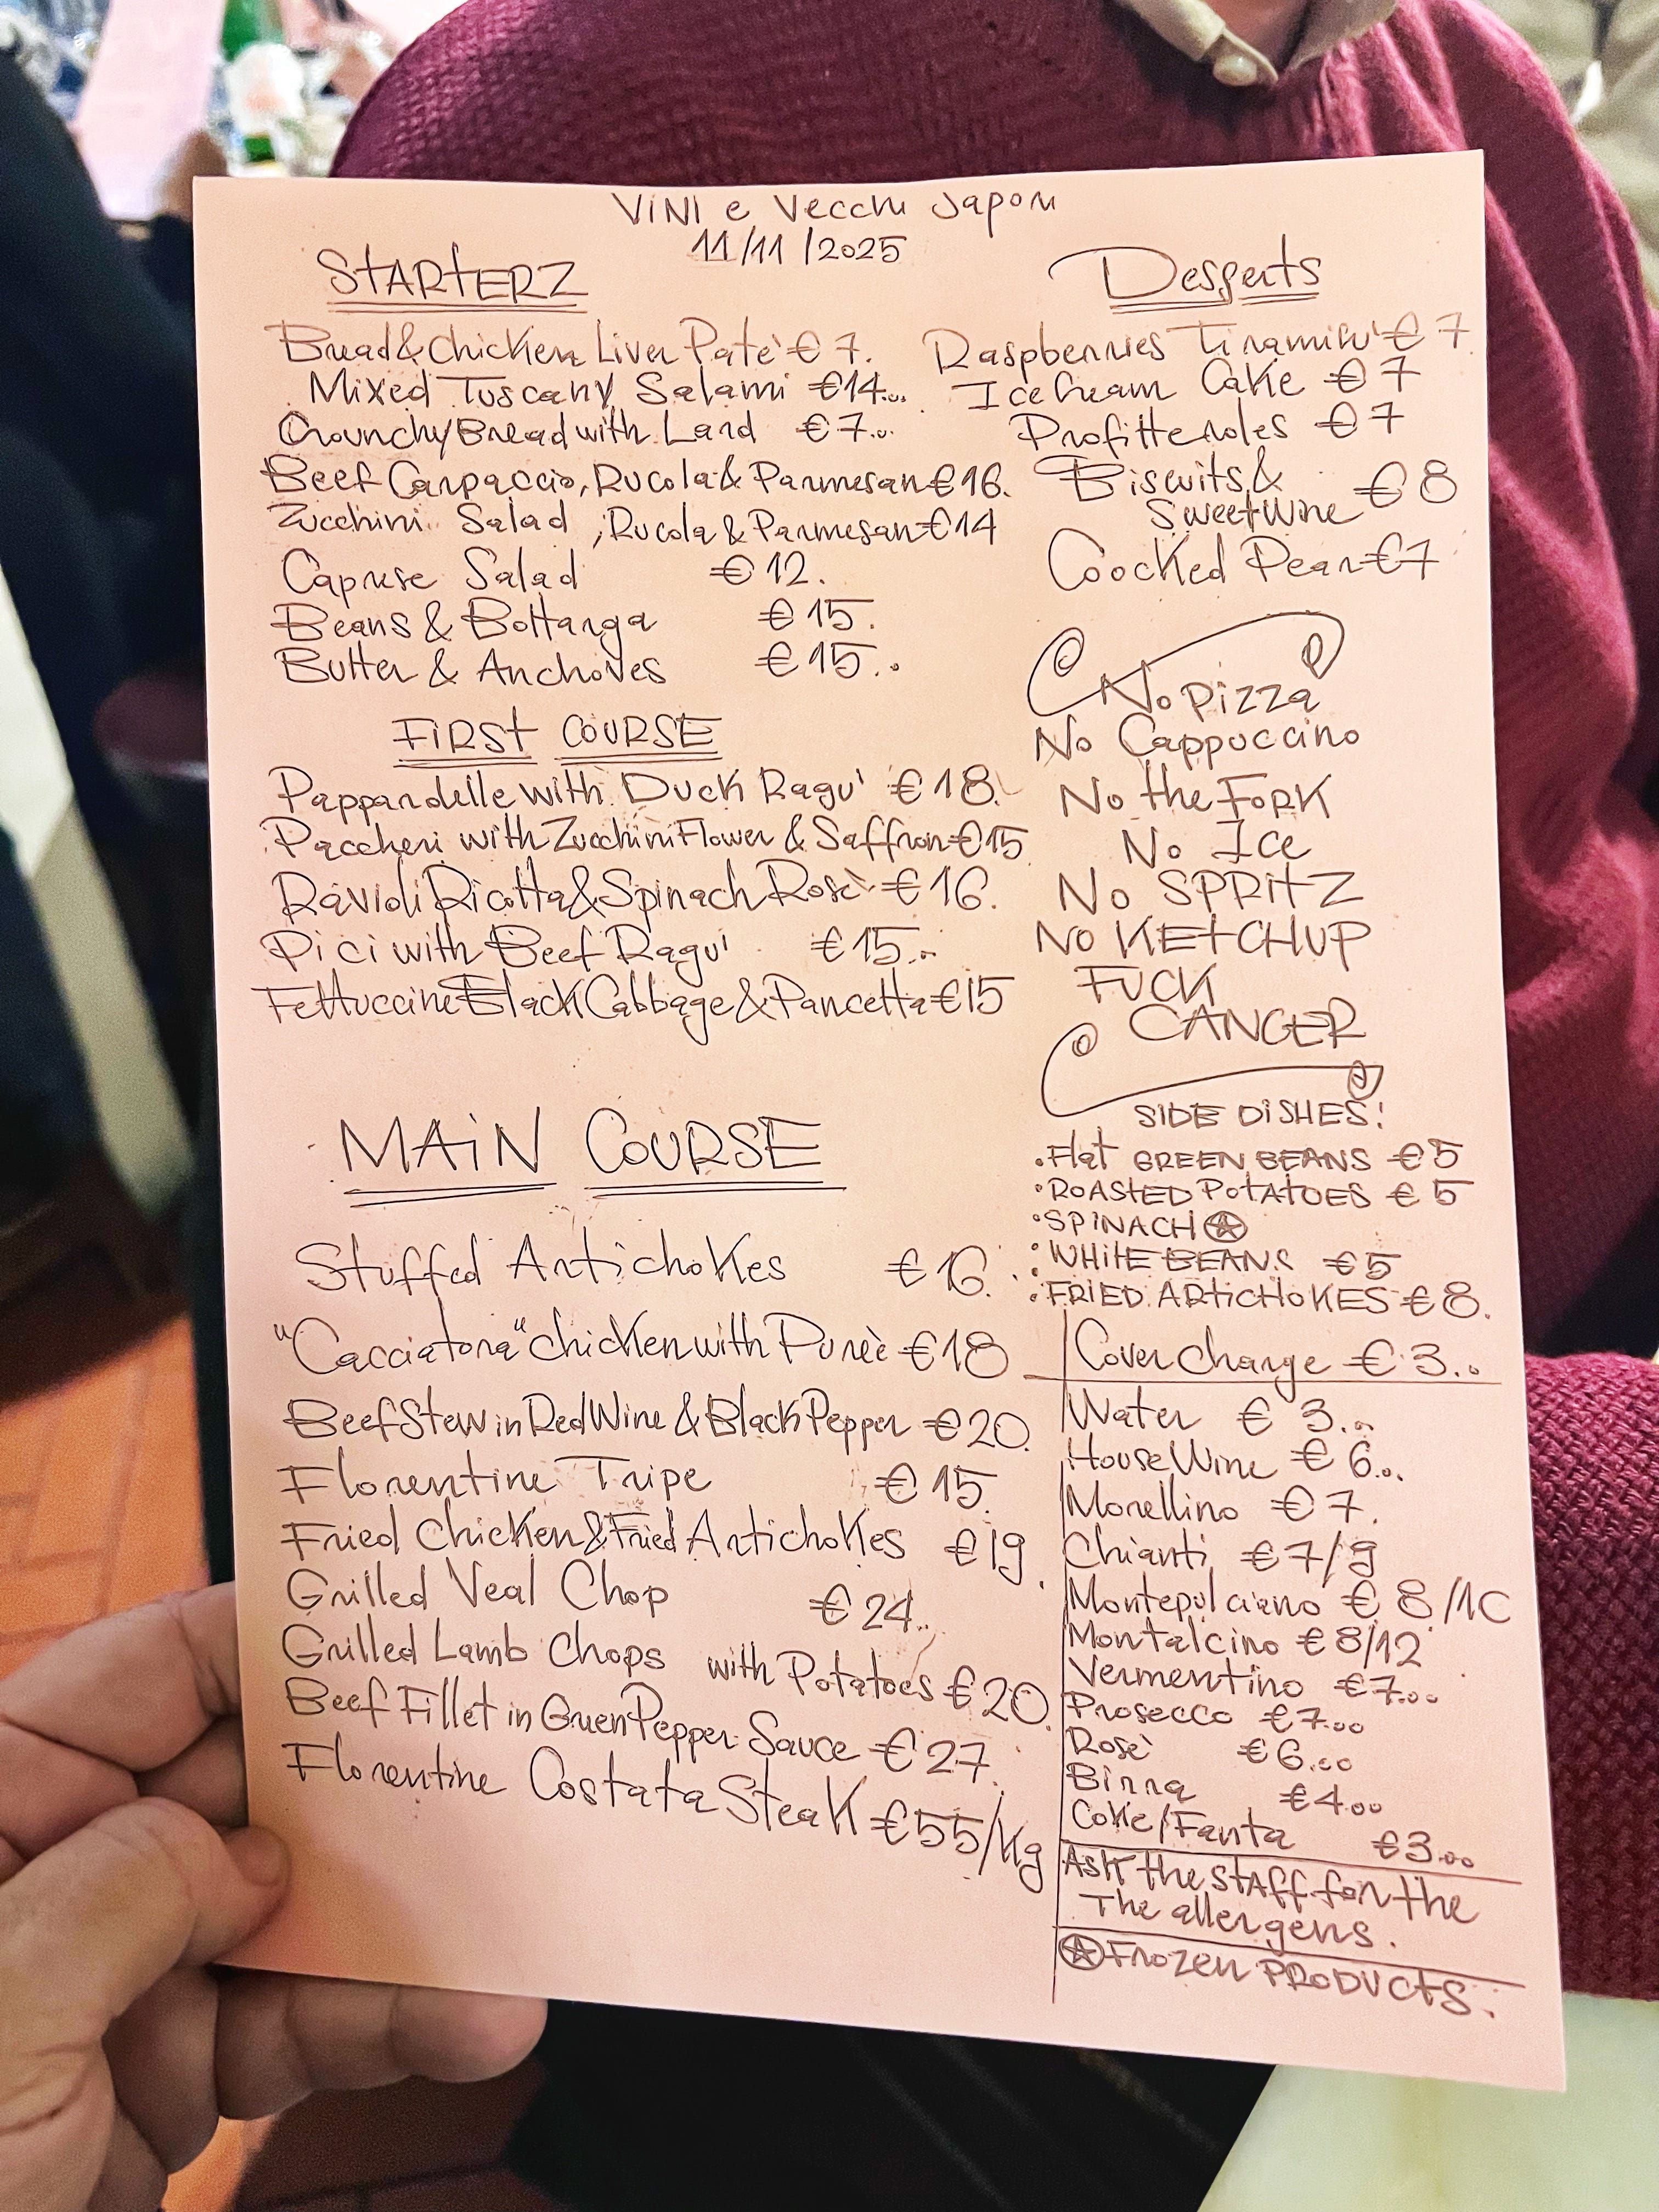 VINI e Vecchi Sapori
11/11/2025
STARTERZ
Bread & Chicken Liver Patè € 7.
Mixed Tuscany Salami €14...
Crounchy Bread with Lard €7...
Beef Carpaccio, Rucola & Parmesan €16.
Zucchini Salad, Rucola & Parmesan €14
Caprese Salad €12.
Beans & Bottarga €15.
Butter & Anchoves €15..
FIRST COURSE
Pappardelle with Duck Ragu' €18.
Paccheri with Zucchini Flower & Saffron €15
Ravioli Ricotta & Spinach Rosè €16.
Pici with Beef Ragu' €15..
Fettuccine Black Cabbage & Pancetta €15
MAiN COURSE
Stuffed Artichokes €16.
"Cacciatora" chicken with Pureè €18
Beef Stew in Red Wine & Black Pepper €20.
Florentine Tripe €15.
Fried Chicken & Fried Artichokes €19.
Grilled Veal Chop €24..
Grilled Lamb Chops with Potatoes €20.
Beef Fillet in Green Pepper Sauce €27.
Florentine Costata Steak €55/Kg
Desserts
Raspberries Tiramisu' € 7.
Ice Cream Cake € 7
Profitteroles € 7
Biscuits &
Sweet Wine € 8
Coocked Pear €7
No Pizza
No Cappuccino
No the FORK
No Ice
No SPRITZ
NO KETCHUP
FUCK
CANCER
SIDE DiSHES!
• Flat GREEN BEANS €5
• ROASTED POTATOES € 5
• SPINACH ⍟
• WHITE BEANS €5
• FRIED ARTICHOKES € 8.
Cover Charge € 3..
Water € 3...
House Wine € 6...
Morellino € 7.
Chianti €7/9
Montepulciano € 8/10
Montalcino €8/12
Vermentino €7.00
Prosecco €7.00
Rosè €6.00
Birra €4.00
Coke/Fanta €3.00
Ask the staff for the
The allergens.
⍟ Frozen PRODUCTS.